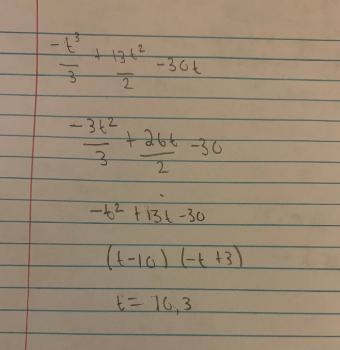 -t³/3 + 13t²/2 -30t
-3t²/3 + 26t/2 -30
-t² + 13t -30
(t-10) (-t +3)
t = 10,3